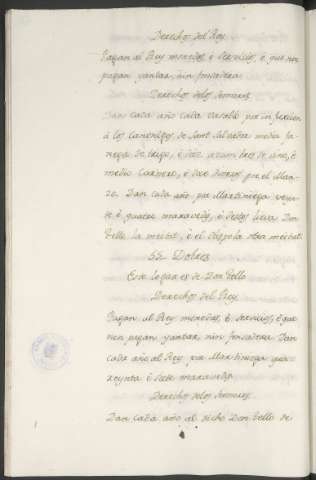 Derechos del Rey
Pagan al Rey monedas, é servicios, é que non
pagan yantar, nin fonsadera
Derechos delos Señores
Dan cada año cada vasallo por infurcion
á los Canonigos de Sant Salvador media fa-
nega de trigo, é dos é de vino, é
medio carnero, é dos dineros por el Mar-
zo. Dan cada año por Martiniega veyn-
te é quatro maravedis, é destos lieva Don
Tello la meitat, é el Abspo la otra meitat
55 Dobres
Este logar es de Don Tello
Derechos del Rey
Pagan al Rey monedas, é servicios, é que
non pagan yantar, nin fonsadera. Dan
cada año al Rey por Martiniega qua-
renta é siete maravedis
Derechos delos Señores
Dan cada año al dicho Don Tello de